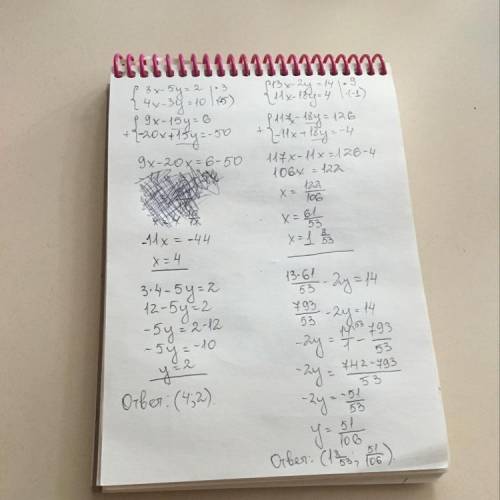 {3x-5y=2 |·3
{4x-3y=10 |·(-5)
+{9x-15y=6
{-20x+15y=-50
9x-20x=6-50
-11x=-44
x=4
3·4-5y=2
12-5y=2
-5y=2-12
-5y=-10
y=2
Ответ: (4;2).
{13x-2y=14 |·9
{11x-18y=4 |(-1)
+{117x-18y=126
{-11x+18y=-4
117x-11x=126-4
106x=122
x=122/106
x=61/53
x=1 8/53
13·61/53-2y=14
793/53-2y=14
-2y=14/1^53-793/53
-2y=742-793/53
-2y=-51/53
y=51/106
Ответ: (1 8/53; 51/106).